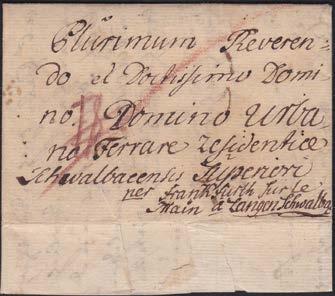 Plurimum Reveren=
do et Doctissimo Domi
no, Domino Urba
no Ferrare residentiæ
Schwalbacensis Superiori
per franckfurth sur le
Main a Langen Schwalba